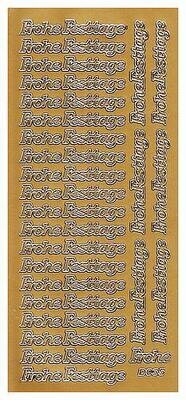 Frohe Festtage
Frohe Festtage
Frohe Festtage
Frohe Festtage
Frohe Festtage
Frohe Festtage
Frohe Festtage
Frohe Festtage
Frohe Festtage
Frohe Festtage
Frohe Festtage
Frohe Festtage
Frohe Festtage
Frohe Festtage
Frohe Festtage
Frohe Festtage
Frohe Festtage
Frohe Festtage
Frohe Festtage
Frohe Festtage
Frohe Festtage
Frohe Festtage
Frohe Festtage
Frohe Festtage
Frohe Festtage
Frohe Festtage
Frohe